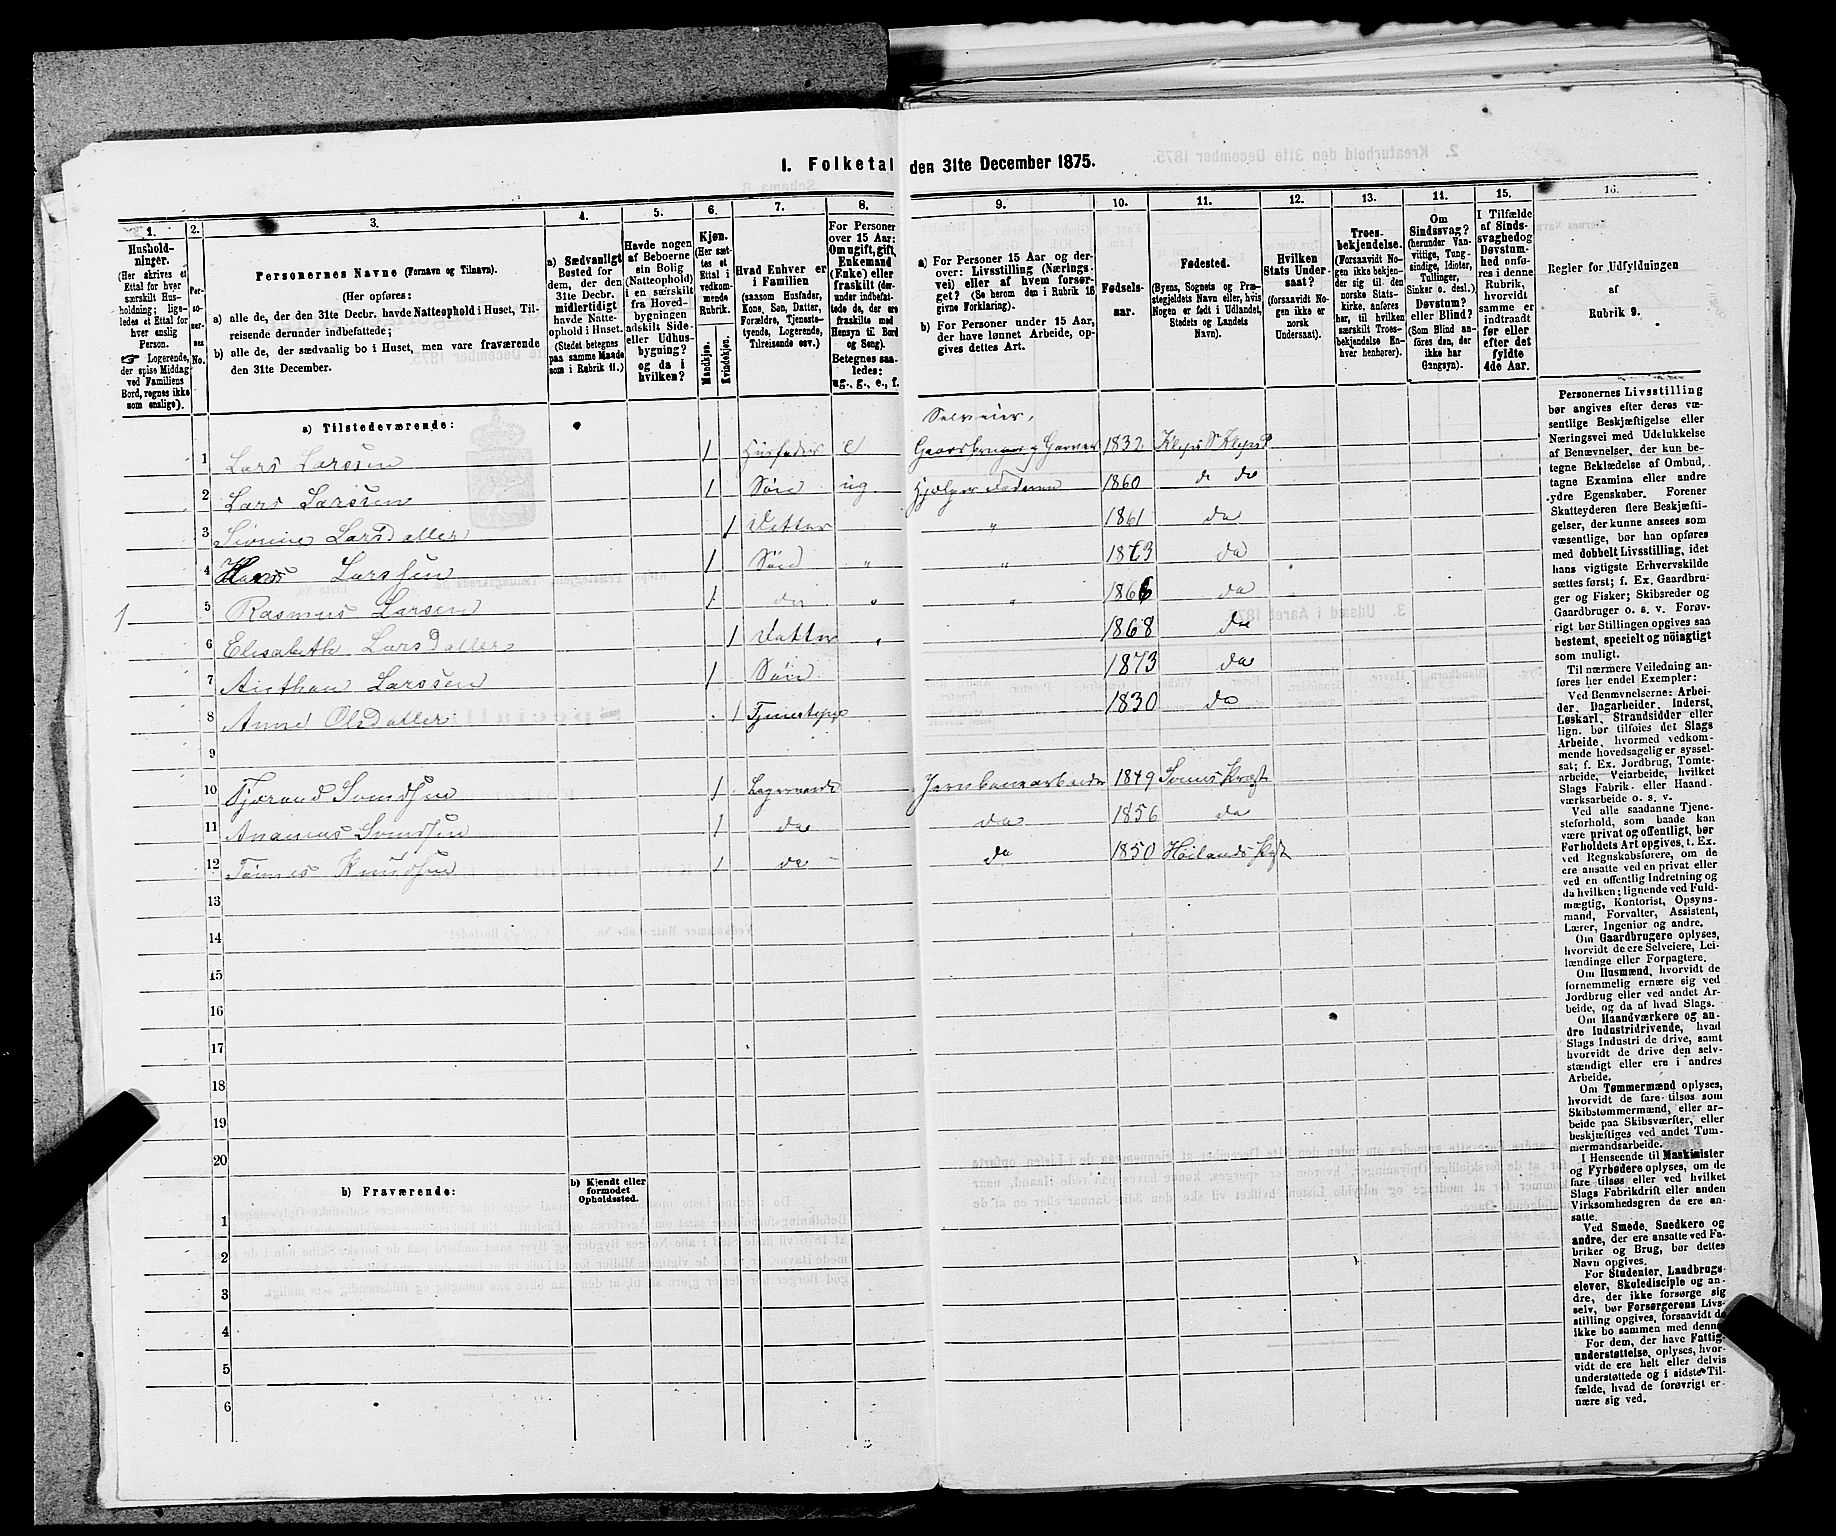 1. Folketal den 31te December 1875.
1.
Hushold-
ninger.
(Her skrives et
Ettal for hver
særskilt Hus-
holdning; lige-
ledes et Ettal for
hver enslig
Person.
☞ Logerende,
der spise Middag
ved Familiens
Bord, regnes ikke
som enslige).
2.
Per-
so-
ner-
nes
No.
3.
Personernes Navne (Fornavn og Tilnavn).
(Her opføres:
a) alle de, der den 31te Decbr. havde Natteophold i Huset, Til-
reisende derunder indbefattede;
b) alle de, der sædvanlig bo i Huset, men vare fraværende
den 31te December.
4.
a) Sædvanligt
Bosted for
dem, der den
31te Decbr.
midlertidigt
havde Natte-
ophold i Huset.
(Stedet betegnes
paa samme Maade
som i Rubrik 11.)
5.
Havde nogen
af Beboerne
sin Bolig
(Natteophold)
i en særskilt
fra Hoved-
bygningen
adskilt Side-
eller Udhus-
bygning?
og da i
hvilken?
6.
Kjøn.
(Her sæt-
tes et
Ettal i
vedkom-
mende
Rubrik.
Mandkjøn.
Kvindekjøn.
7.
Hvad Enhver er
i Familien
(saasom Husfader,
Kone, Søn, Datter,
Forældre, Tjeneste-
tyende, Logerende,
Tilreisende osv.)
8.
For Personer
over 15 Aar:
Om ugift, gift,
Enkemand
(Enke) eller
fraskilt (der-
under indbefat-
tede de, der ere
fraskilte med
Hensyn til Bord
og Seng).
Betegnes saa-
ledes:
ug., g., e., f.
9.
a) For Personer 15 Aar og der-
over: Livsstilling (Nærings-
vei) eller af hvem forsør-
get? (Se herom den i Rubrik 16
givne Forklaring).
b) For Personer under 15 Aar,
der have lønnet Arbeide, op-
gives dettes Art.
10.
Fødsels-
aar.
11.
Fødested.
(Byens, Sognets og Præ-
stegjeldets Navn eller, hvis
Nogen er født i Udlandet,
Stedets og Landets
Navn).
12.
Hvilken
Stats Under-
saat?
(forsaavidt No-
gen ikke er
norsk
Undersaat).
13.
Troes-
bekjendelse.
(Forsaavidt No-
gen ikke bekjen-
der sig til den
norske Stats-
kirke, anføres
her, til hvilken
særskilt Troes-
bekjendelse En-
hver henhører).
14.
Om
Sindssvag?
(herunder Van-
vittige, Tung-
sindige, Idioter,
Tullinger,
Sinker o. desl.)
Døvstum?
eller Blind?
(Som Blind an-
føres den, der
ikke har
Gangsyn).
15.
I Tilfælde
af Sinds-
svaghed og
Døvstum-
hed onfø-
res i denne
Rubrik,
hvorvidt
samme er
indtraadt
før eller
efter det
fyldte
4de Aar.
16.
Regler for Udfyldningen
af
Rubrik 9.
a) Tilstedeværende:
Selveier,
1 Lars Larssen 1 Husfader e Gaardbruger 1832 Klep S Klep P
2 Lars Larssen 1 Søn ug. Hjælper Faderen 1860 do do
3 Larsdatter 1 Datter " 1861 do
4 Hans Larssen 1 Søn " " do
1
5 Rasmus Larsen 1 do " " 1866 do
6 Elisabeth Larsdatter 1 Datter " 1868 do
7 Larssen 1 Søn 1873 do
8 Anne Olsdatter 1 1830 do
9
10 Tjørand Svendsen 1 Logerende Jernbanearbeider 1849
11 Svendsen 1 do do 1856 do
12 Tønnes Knudsen 1 do do 1850 Høilands
13
14
15
16
17
18
19
20
b) Fraværende:
b) Kjendt eller
formodet
Opholdssted.
1
2
3
4
5
6
Personernes Livsstilling
bør angives efter deres væ-
sentlige Beskjæftigelse eller
Næringsvei med Udelukkelse
af Benævnelser, der kun be-
tegne Beklædelse af Ombud,
tagne Examina eller andre
ydre Egenskaber. Forener
Skatteyderen flere Beskjæfti-
gelser, der kunne ansees som
væsentlige, bør han opføres
med dobbelt Livsstilling, idet
hans vigtigste Erhvervskilde
sættes først; f. Ex. Gaardbru-
ger og Fisker; Skibsreder og
Gaardbruger o. s. v. Forøv-
rigt bør Stillingen opgives saa
bestemt, specielt og nöiagtigt
som muligt.
Til nærmere Veiledning an-
føres her endel Exempler:
Ved Benævnelserne: Arbei-
der, Dagarbeider, Inderst,
Løskarl, Strandsidder eller
lign. bør tilføies det Slags
Arbeide, hvormed vedkom-
mende hovedsagelig er syssel-
sat; f. Ex. Jordbrug, Tomte-
arbeide, Veiarbeide, hvilket
Slags Fabrik- eller Haand-
værksarbeide o. s. v.
Ved alle saadanne Tjene-
steforhold, som baade kan
være privat og offentligt, bør
Forholdets Art opgives, t. Ex.
ved Regnskabsførere, om de
ere ansatte ved en privat eller
ved en offentlig Indretning og
da hvilken; lignende ved Fuld-
mægtig, Kontorist, Opsyns-
mand, Forvalter, Assistent,
Lærer, Ingeniør og andre.
Om Gaardbrugere oplyses,
hvorvidt de ere Selveiere, Lei-
lændinge eller Forpagtere.
Om Husmænd, hvorvidt de
fornemmelig ernære sig ved
Jordbrug eller ved andet Ar-
beide, og da af hvad Slags.
Om Haandværkere og an-
dre Industridrivende, hvad
Slags Industri de drive, samt
hvorvidt de drive den selv-
stændigt eller ere i andres
Arbeide.
Om Tømmermænd oplyses,
hvorvidt de fare tilsøs som
Skibstømmermænd, eller ar-
beide paa Skibsværfter, eller
beskjæftiges ved andet Tøm-
mermandsarbeide.
I Henseende til Maskinister
og Fyrbødere oplyses, om de
fare tilsøs eller ved hvilket
Slags Fabrikdrift eller anden
Virksomhedsgren de ere an-
satte.
Ved Smede, Snedkere og
andre, der ere ansatte ved Fa-
briker og Brug, bør dettes
Navn opgives.
For Studenter, Landbrugs-
elever, Skoledisciple og an-
dre, der ikke forsørge sig
selv, bør Forsørgerens Livs-
stilling opgives, forsaavidt de
ikke bo sammen med denne.
For dem, der have Fattig-
understøttelse, oplyses, hvor-
vidt de ere helt eller delvis
understøttede og i sidste Til-
fælde, hvad de forøvrigt er-
nære sig ved.